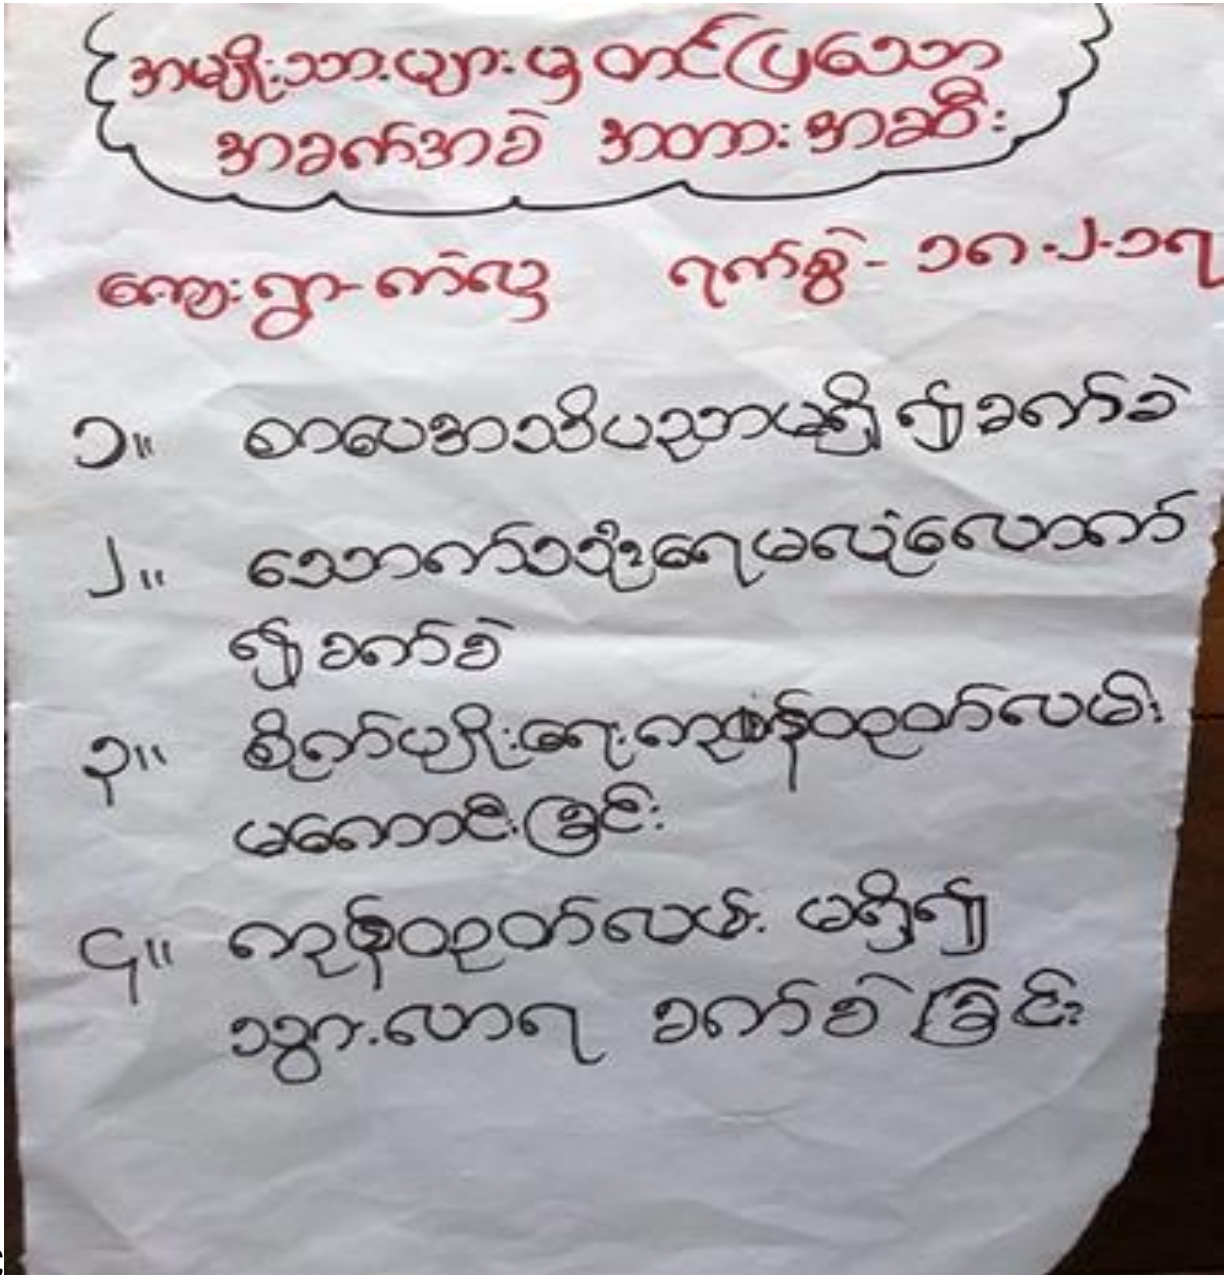 အမျိုးသားများမှ တင်ပြသော
အခက်အခဲ အတားအဆီး
ကျေးရွာ-ကံလှ ရက်စွဲ- ၁၈.၂.၁၇
၁။ စာပေအသိပညာမရှိ၍ခက်ခဲ
၂။ သောက်သုံးရေမလုံလောက်
၍ခက်ခဲ
၃။ စိုက်ပျိုးရေးကုန်ထုတ်လမ်း
မကောင်းခြင်း
၄။ ကုန်ထုတ်လမ်း မရှိ၍
သွားလာရ ခက်ခဲခြင်း